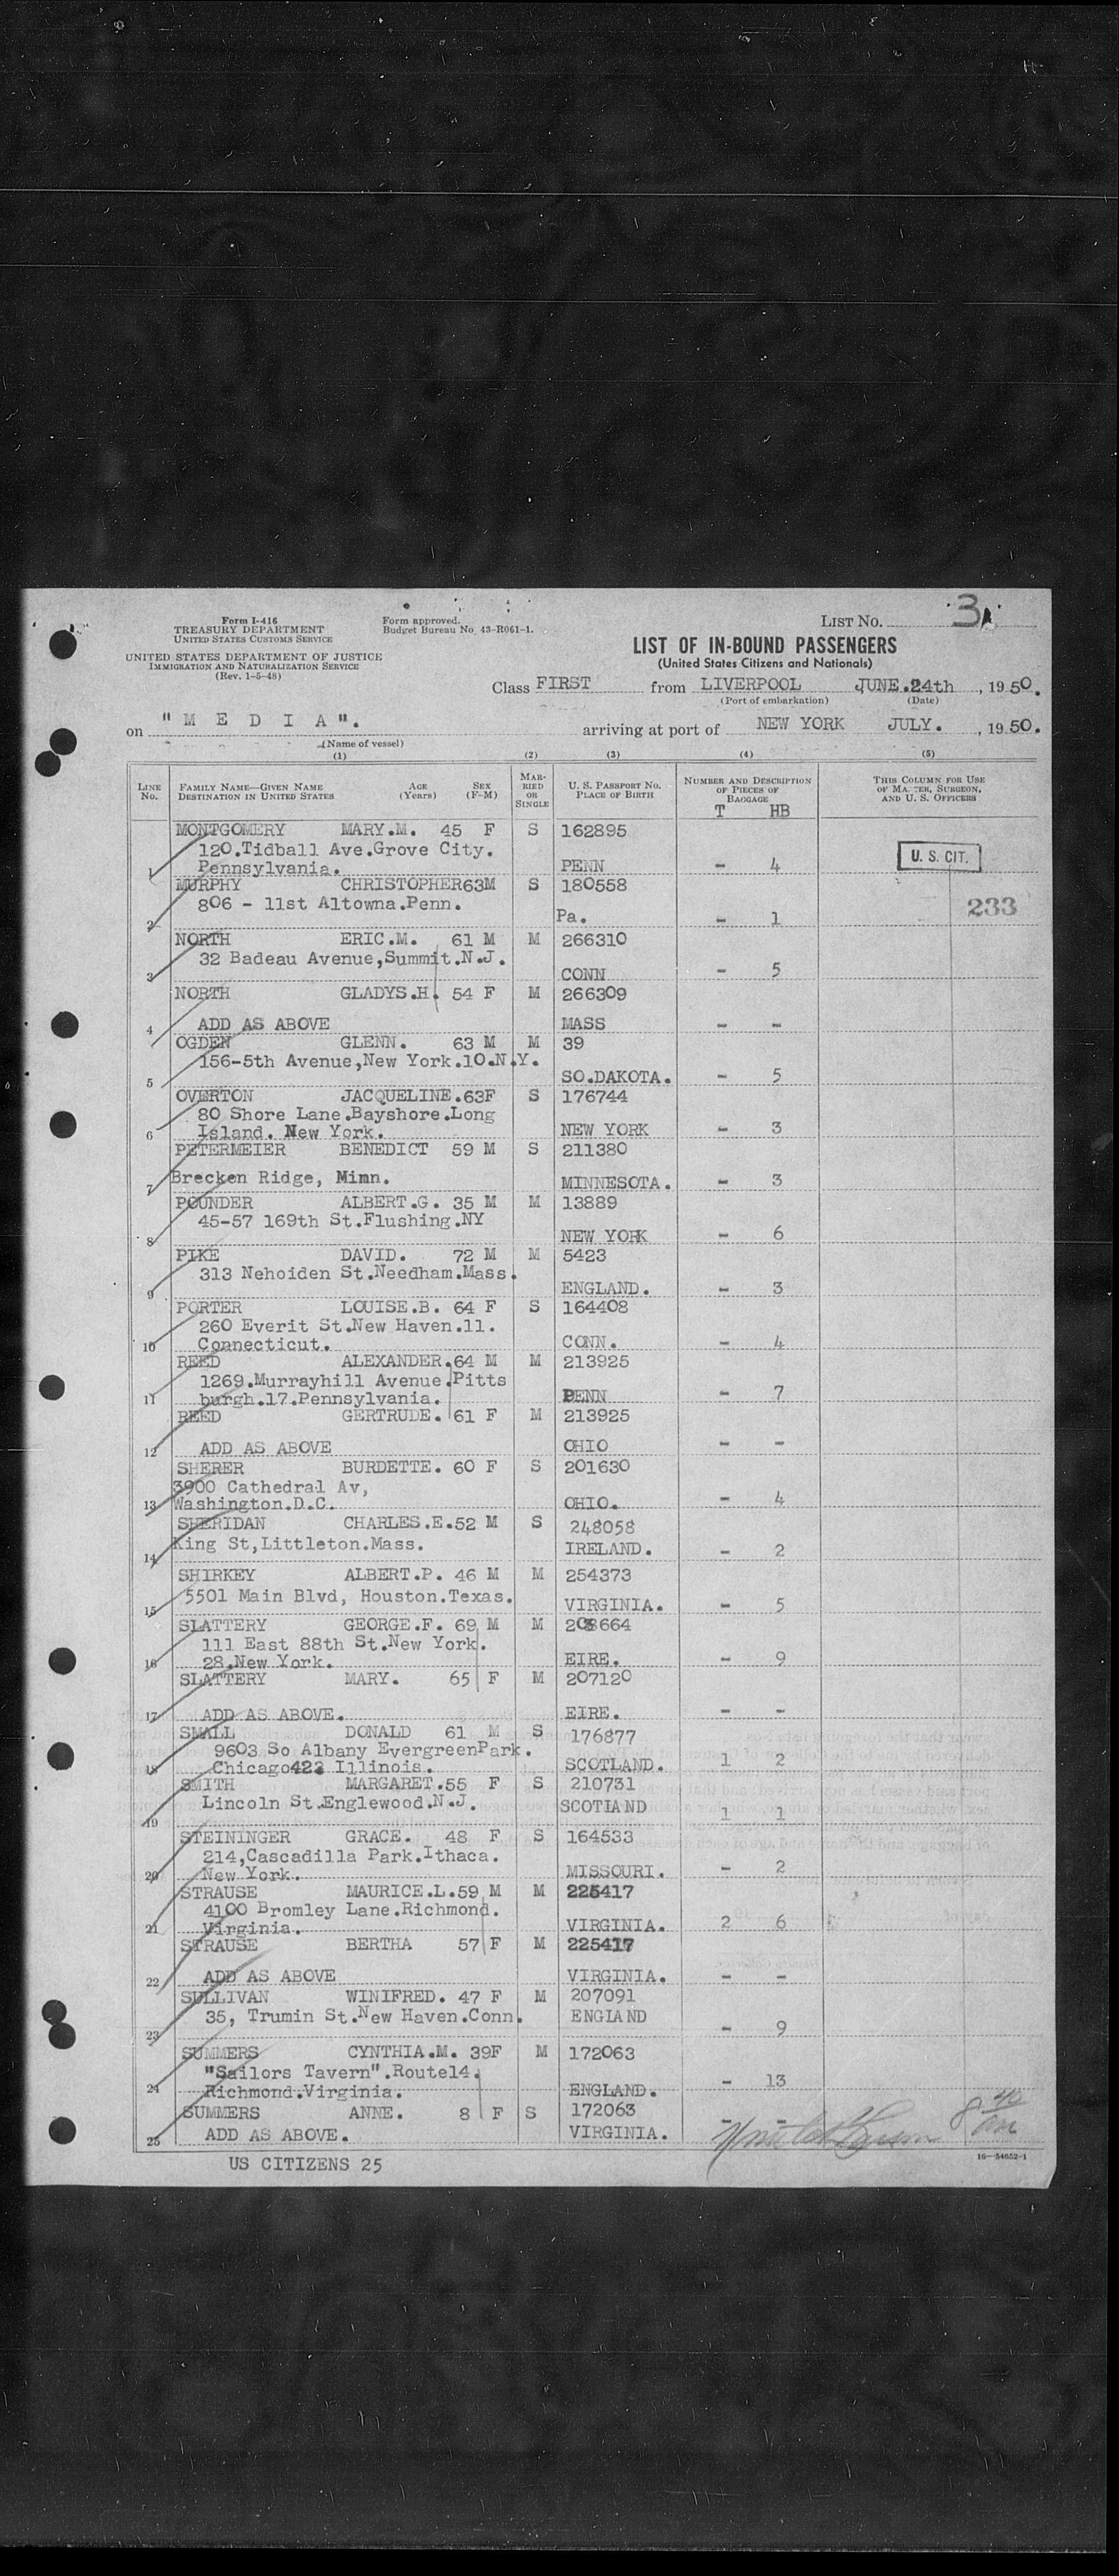 Form I-416
TREASURY DEPARTMENT
UNITED STATES CUSTOMS SERVICE
Form approved.
Budget Bureau No. 43-R061-1.
LIST NO. 3
UNITED STATES DEPARTMENT OF JUSTICE
IMMIGRATION AND NATURALIZATION SERVICE
(Rev. 1-5-48)
LIST OF IN-BOUND PASSENGERS
(United States Citizens and Nationals)
Class FIRST from LIVERPOOL JUNE.24th , 1950.
(Port of embarkation) (Date)
on "M E D I A". arriving at port of NEW YORK JULY. , 1950.
(Name of vessel)
(1) (2) (3) (4) (5)
LINE No. FAMILY NAME—GIVEN NAME DESTINATION IN UNITED STATES AGE (Years) SEX (F-M) MARRIED OR SINGLE U. S. PASSPORT NO. PLACE OF BIRTH NUMBER AND DESCRIPTION OF PIECES OF BAGGAGE THIS COLUMN FOR USE OF MASTER, SURGEON, AND U. S. OFFICERS
T HB
MONTGOMERY MARY.M. 45 F S 162895
120.Tidball Ave.Grove City.
1 Pennsylvania. PENN - 4 U. S. CIT.
MURPHY CHRISTOPHER63M S 180558
806 - 11st Altowna.Penn. 233
2 Pa. - 1
NORTH ERIC.M. 61 M M 266310
32 Badeau Avenue,Summit.N.J.
3 CONN - 5
NORTH GLADYS.H. 54 F M 266309
4 ADD AS ABOVE MASS - -
OGDEN GLENN. 63 M M 39
156-5th Avenue,New York.10.N.Y.
5 SO.DAKOTA. - 5
OVERTON JACQUELINE.63F S 176744
80 Shore Lane.Bayshore.Long
6 Island. New York. NEW YORK - 3
PETERMEIER BENEDICT 59 M S 211380
7 Brecken Ridge, Minn. MINNESOTA. - 3
POUNDER ALBERT.G. 35 M M 13889
45-57 169th St.Flushing.NY
8 NEW YORK - 6
PIKE DAVID. 72 M M 5423
313 Nehoiden St.Needham.Mass.
9 ENGLAND. - 3
PORTER LOUISE.B. 64 F S 164408
260 Everit St.New Haven.11.
10 Connecticut. CONN. - 4
REED ALEXANDER.64 M M 213925
1269.Murrayhill Avenue.Pitts
11 burgh.17.Pennsylvania. PENN - 7
REED GERTRUDE. 61 F M 213925
12 ADD AS ABOVE OHIO - -
SHERER BURDETTE. 60 F S 201630
3900 Cathedral Av,
13 Washington.D.C. OHIO. - 4
SHERIDAN CHARLES.E.52 M S 248058
14 King St,Littleton.Mass. IRELAND. - 2
SHIRKEY ALBERT.P. 46 M M 254373
15 5501 Main Blvd, Houston.Texas. VIRGINIA. - 5
SLATTERY GEORGE.F. 69 M M 208664
111 East 88th St.New York.
16 28.New York. EIRE. - 9
SLATTERY MARY. 65 F M 207120
17 ADD AS ABOVE. EIRE. - -
SMALL DONALD 61 M S 176877
9603 So Albany EvergreenPark.
18 Chicago422 Illinois. SCOTLAND. 1 2
SMITH MARGARET.55 F S 210731
Lincoln St.Englewood.N.J. SCOTIAND
19 1 1
STEININGER GRACE. 48 F S 164533
214,Cascadilla Park.Ithaca.
20 New York. MISSOURI. - 2
STRAUSE MAURICE.L.59 M M 225417
4100 Bromley Lane.Richmond.
21 Virginia. VIRGINIA. 2 6
STRAUSE BERTHA 57 F M 225417
22 ADD AS ABOVE VIRGINIA. - -
SULLIVAN WINIFRED. 47 F M 207091
35, Trumin St.New Haven.Conn. ENGIAND
23 - 9
SUMMERS CYNTHIA.M. 39F M 172063
"Sailors Tavern".Route14.
24 Richmond.Virginia. ENGLAND. - 13
SUMMERS ANNE. 8 F S 172063
25 ADD AS ABOVE. VIRGINIA. - -
8 40 am
US CITIZENS 25
16—54652-1